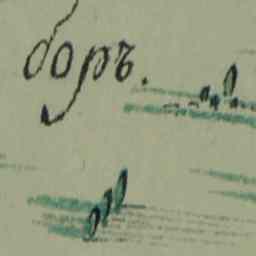 боръ.